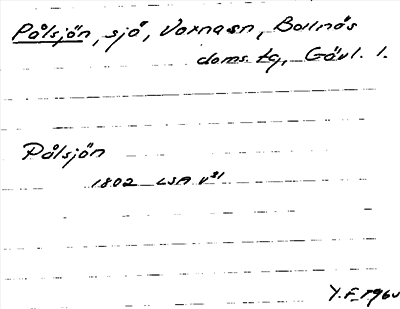 Pålsjön, sjö, Voxnaån, Bollnäs
doms. tg, Gävl. l.
Pålsjön
1802 LSA v31
Y.F. 1960